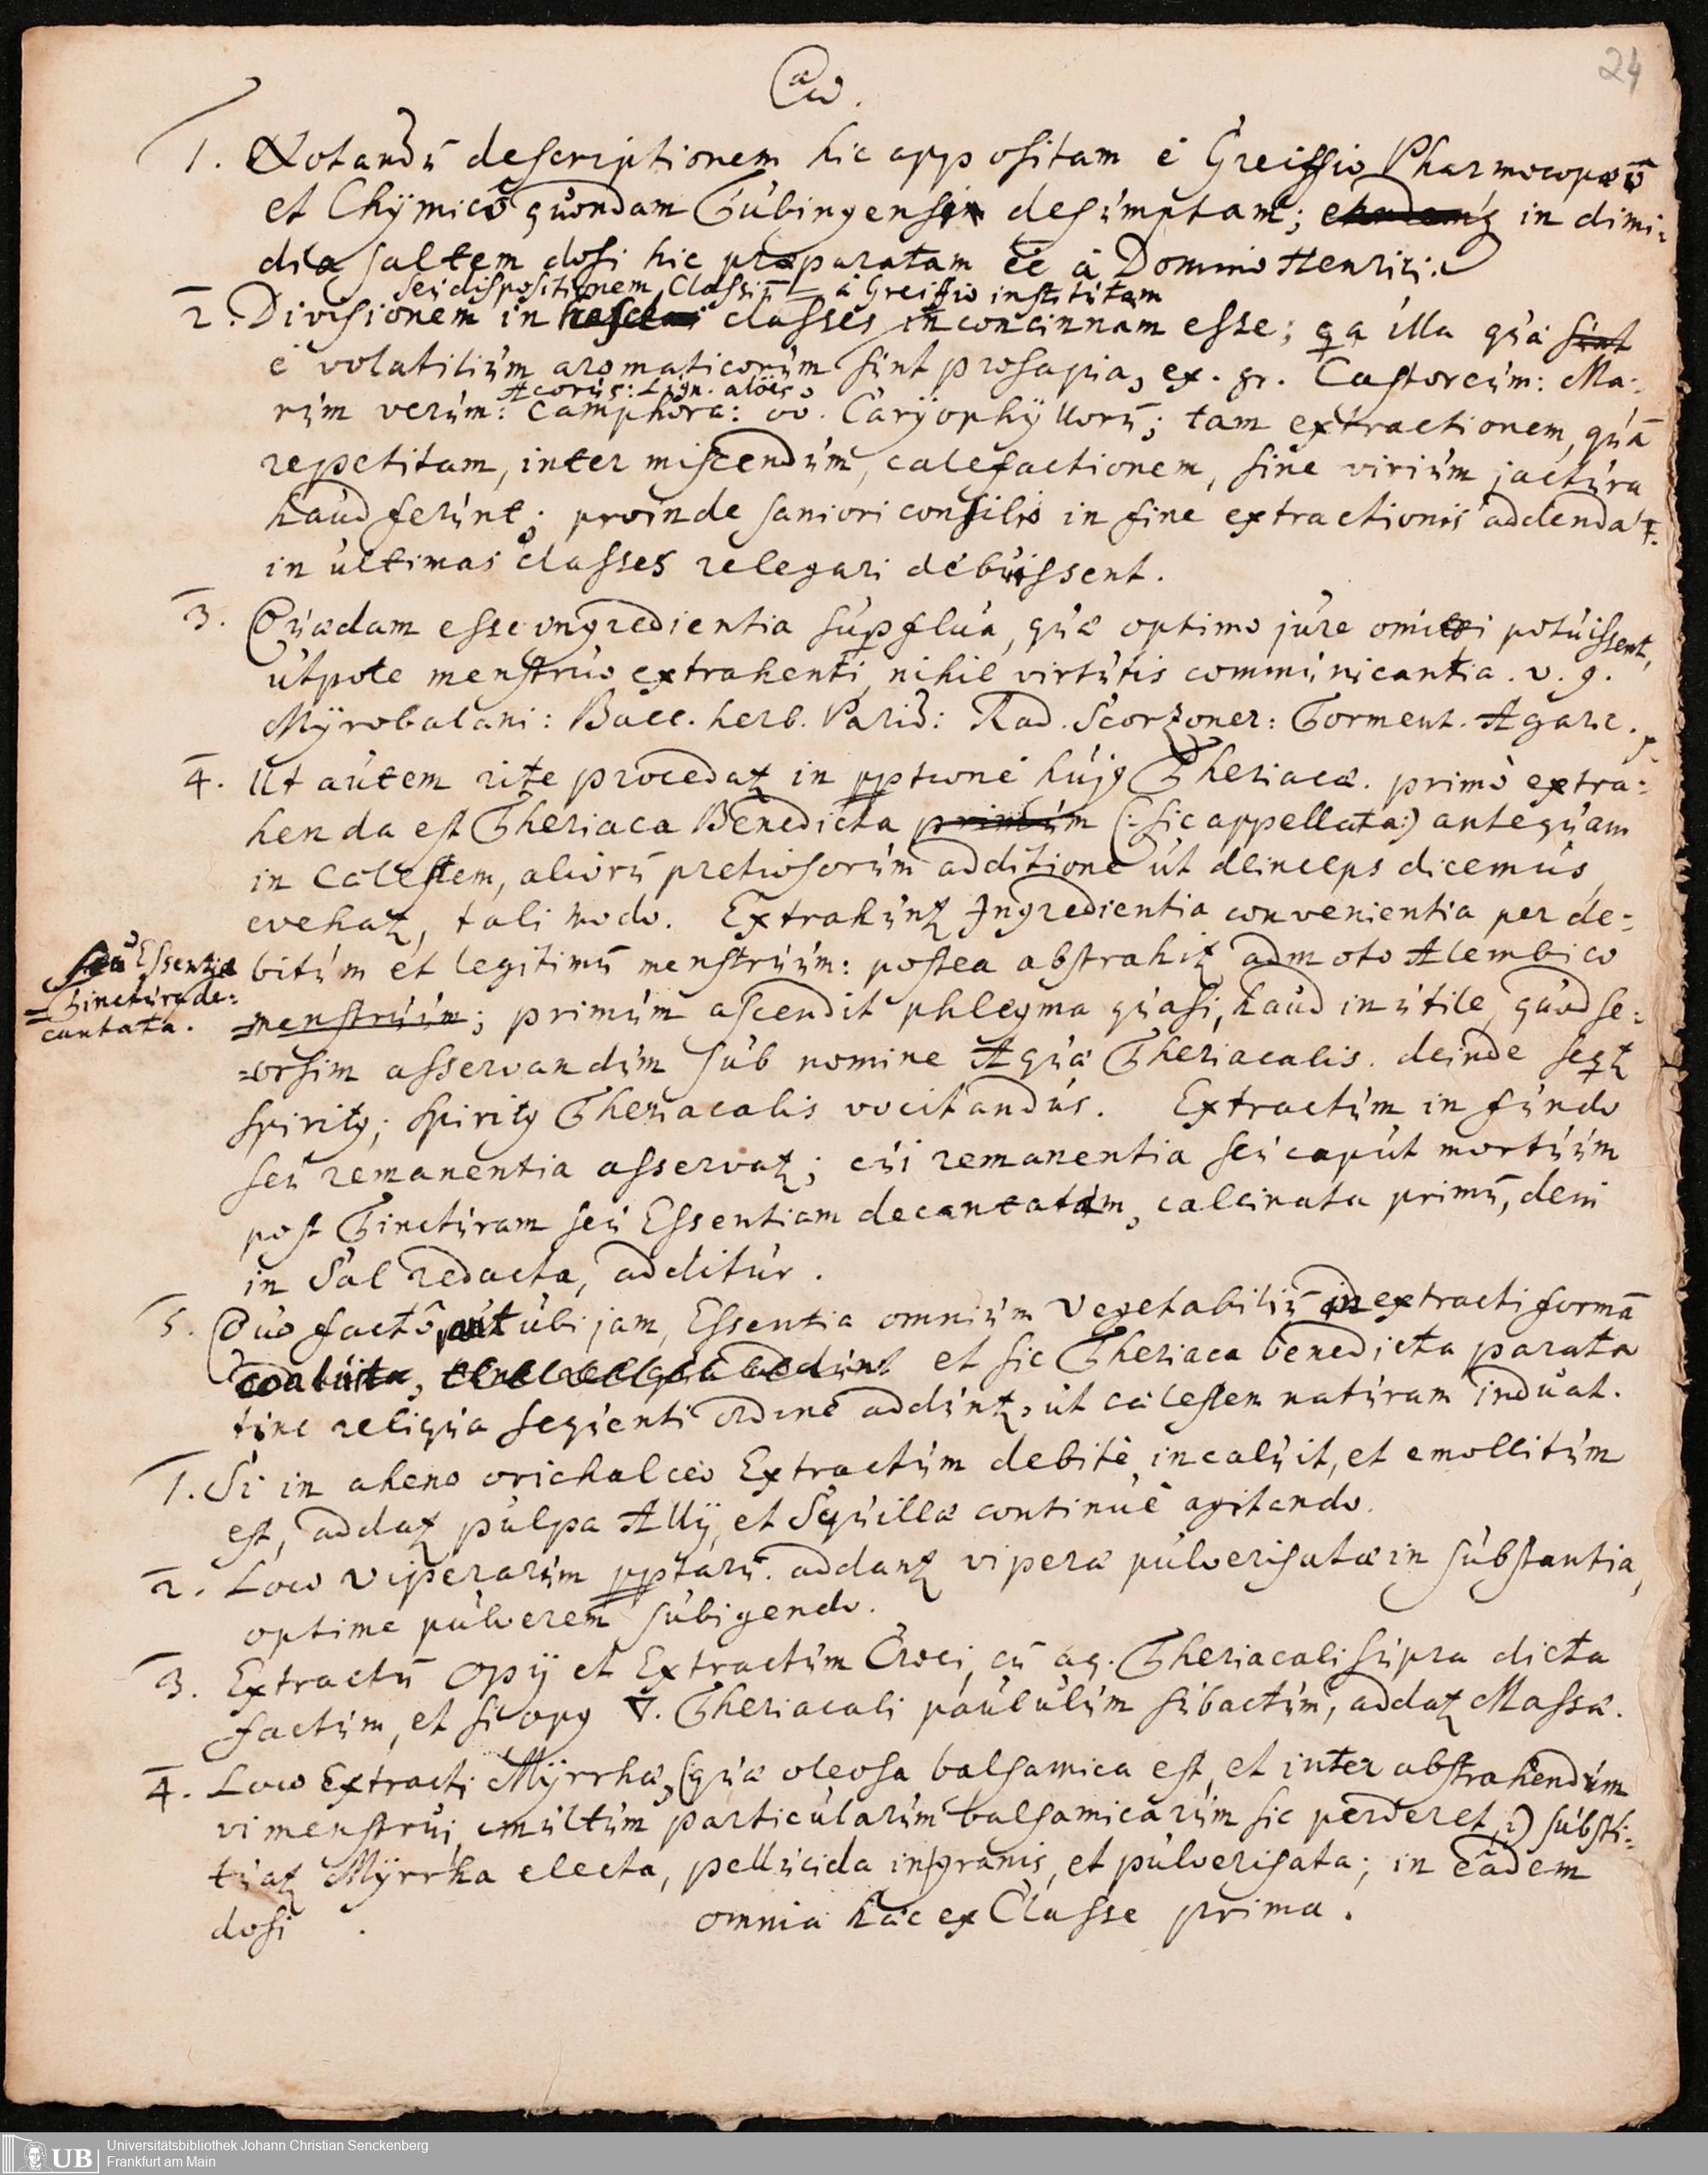 24
1. Notandū descriptionem hic appositam è Greissio Pharmocopæō
et Chÿmicô quondam Tubingensi desumptam; in dimi:
dia saltem dosi hic præparatam eē à Domino Henrizi.
seu dispositionem Classiū à Greissio institutam
2. Divisionem in classes inconcinnam esse; qa illa quæ sint
è volatilium aromaticorum sunt prosapia, ex. gr. Castoreum: Ma:
Acorus: Lign. aloës
rum verum: Camphora: oo. Carÿophÿllorū; tam extractionem, quā
repetitam, inter miscendum, calefactionem, sine virium jactura
haud ferunt; proinde saniori consilio in fine extractionis addenda
in ultimas classes relegari debuissent.
3. Quædam esse ingredientia supflua, quæ optimo jure omitti potuissent,
utpote menstruo extrahenti, nihil virtutis communicantia. v. g.
Mÿrobalani: Bacc. herb. Parid: Rad. Scorzoner: Torment. Agaric.
4. Ut autem rite procedatʒ in pptione hujg Theriacæ. primò extra:
henda est Theriaca Benedicta primum (: sic appellata:) antequam
in cælestem, aliorū pretiosorum additione ut deinceps dicemus,
evehatʒ, tali modo. Extrahuntʒ Ingredientia convenientia per de:
bitum et legitimū menstruum: postea abstrahitʒ admoto Alembico
seu Essentia
Tinctura de:
cantata.
menstruum; primum ascendit phlegma quasi, haud inutile, quod se:
orsim asservandum sub nomine Aquæ Theriacalis. deinde seqtʒ
spiritg; spiritg Theriacalis vocitandus. Extractum in fundo
seu remanentia asservatʒ; cui remanentia seu caput mortuum
post Tincturam seu Essentiam decantatam, calcinata primū, dein
in Sal redacta, additur.
5. Quo factô, ut ubi jam, Essentia omnium Vegetabiliū in extracti formā
coaluita, et sic Theriaca benedicta parata
tunc reliqua sequenti ordine adduntʒ, ut cælestem naturam induat.
1. Si in aheno orichalceo Extractum debitè incaluit, et emollitum
est, addatʒ pulpa Allÿ, et Squillæ continuè agitando.
2. Loco viperarum pptarū. addantʒ viperæ pulverisatæ in substantia,
optime pulverem subigendo.
3. Extractū Opÿ et Extractum Croci, cū aq. Theriacali supra dicta
factum, et sic opg 🜄. Theriacali paululum subactum, addatʒ Massæ.
4. Loco Extracti Mÿrrhæ, (quæ oleosa balsamica est, et inter abstrahendum
vi menstrui, multum particularum balsamicarum sic perderet,:) substi:
tuatʒ Mÿrrha electa, pellucida in granis, et pulverisata; in eâdem
dosi. omnia hæc ex Classe prima.
UB
Universitätsbibliothek Johann Christian Senckenberg
Frankfurt am Main